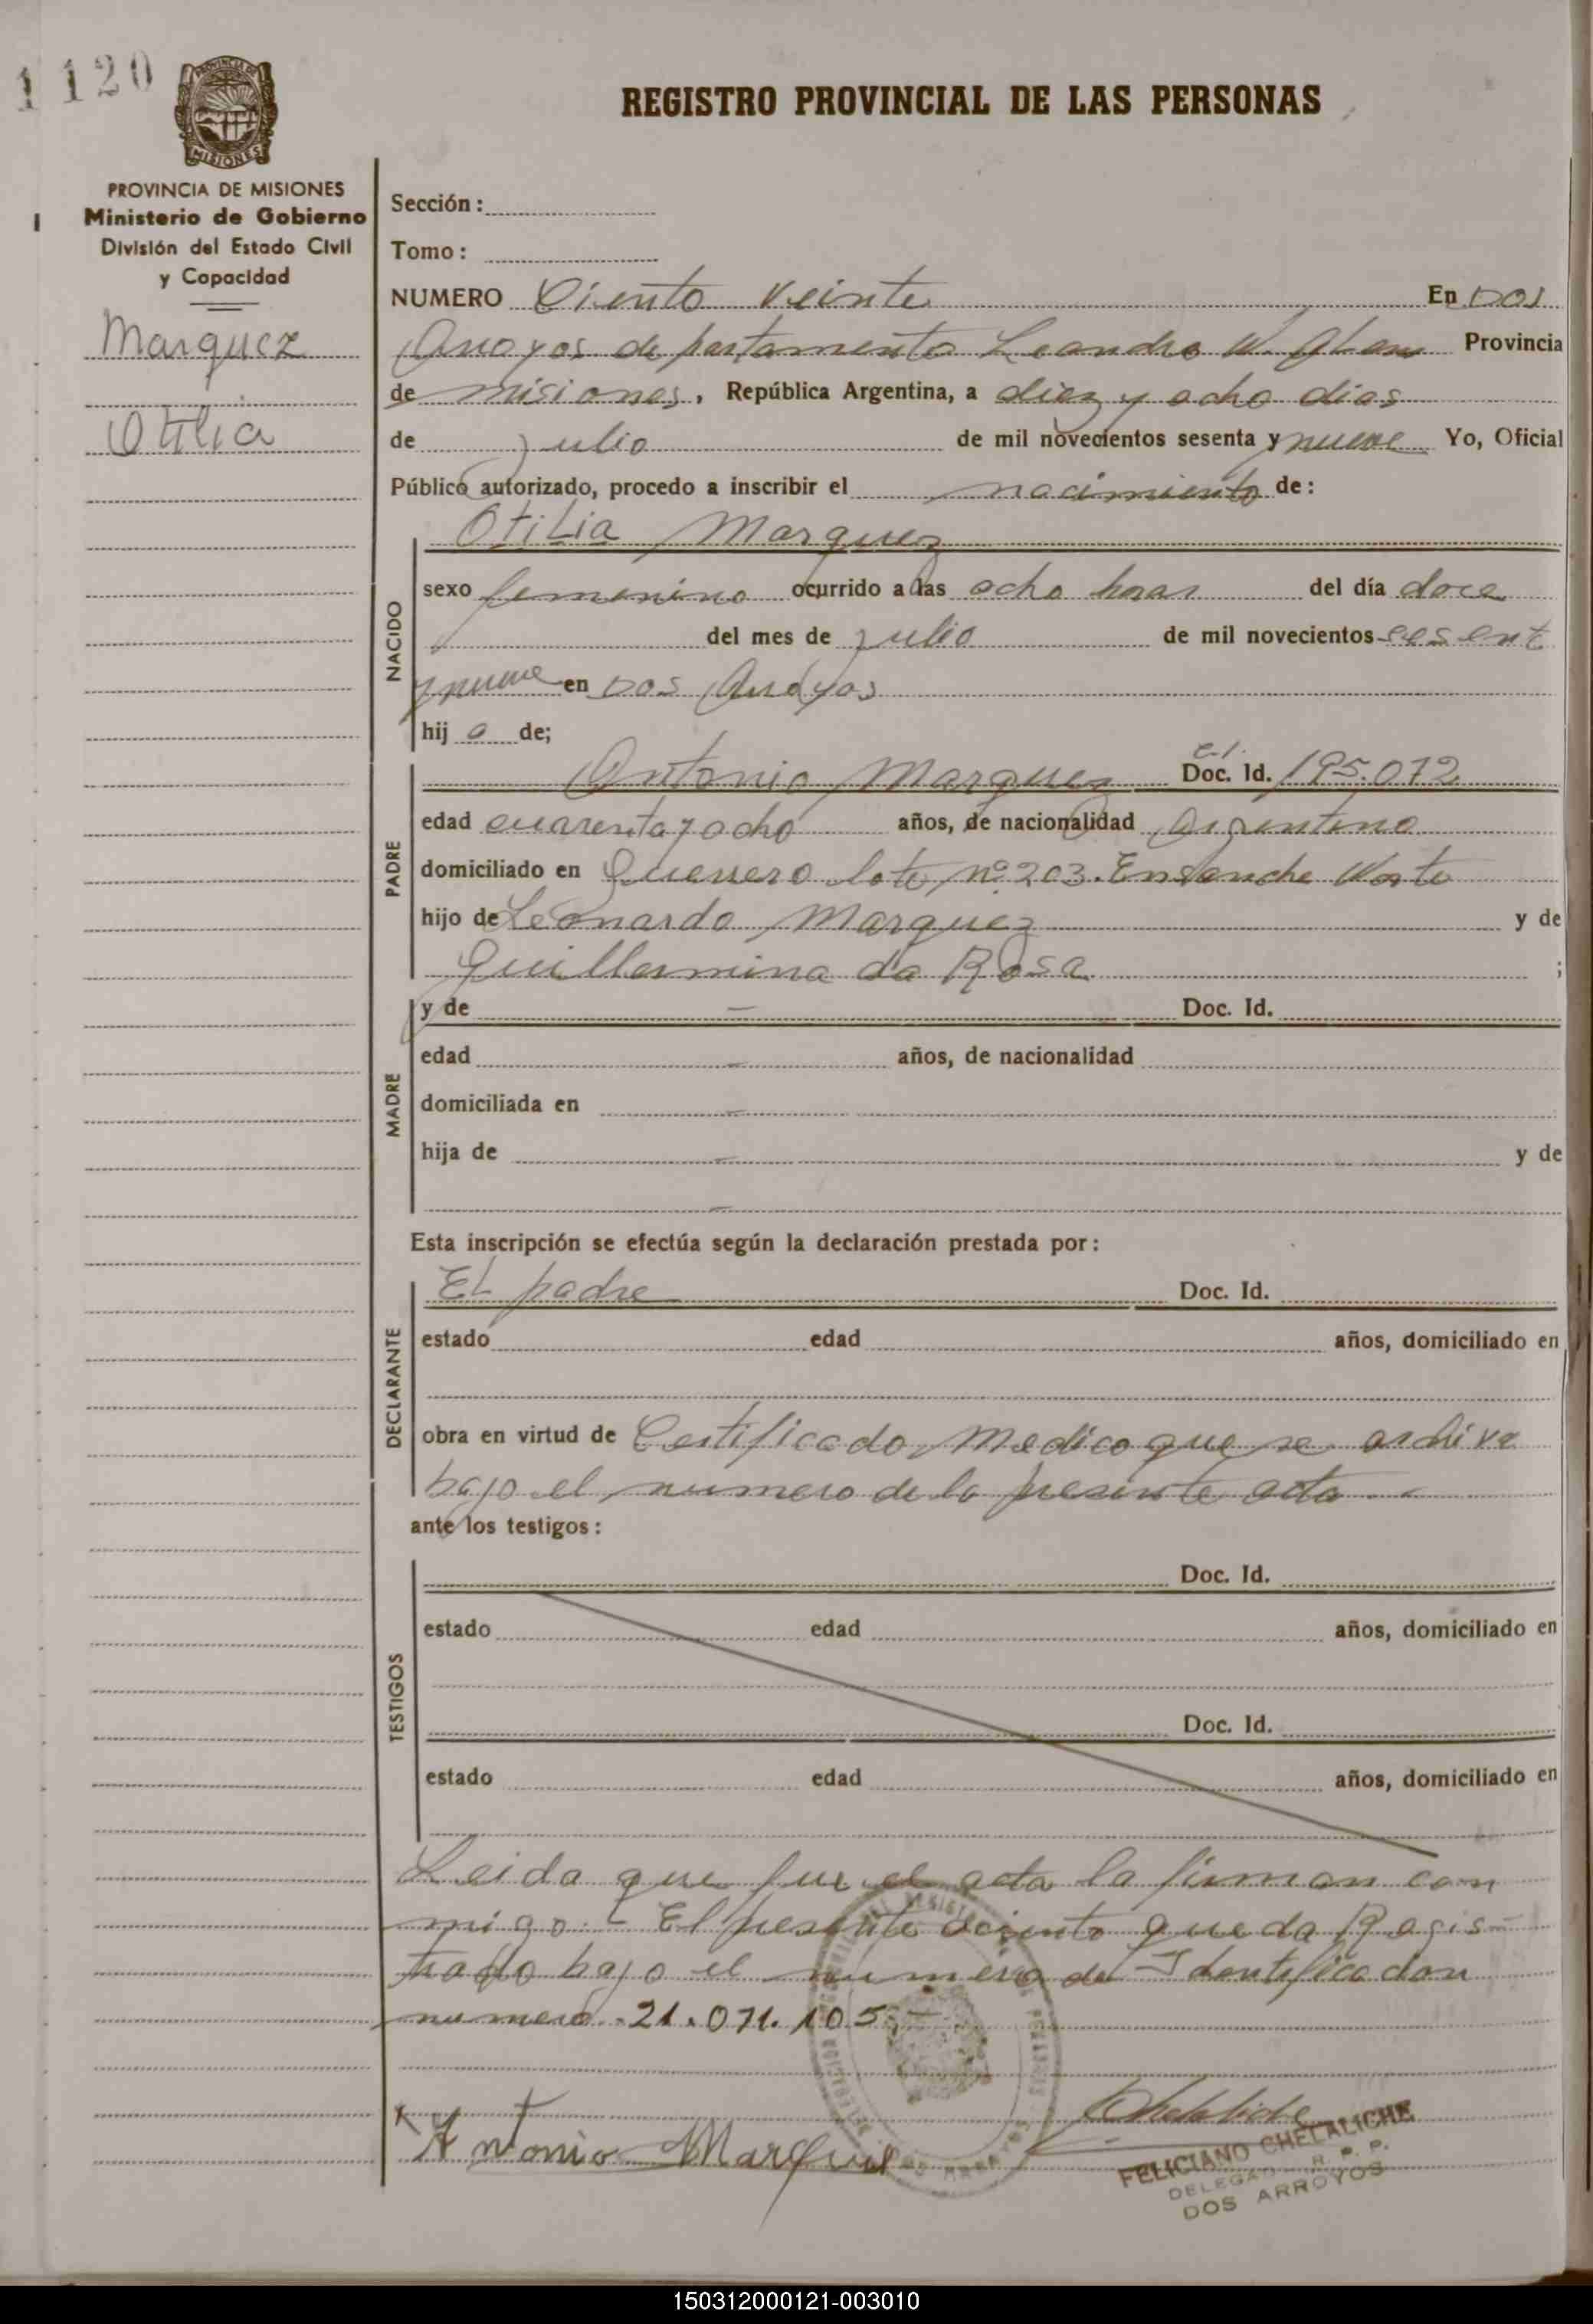 1 120
REGISTRO PROVINCIAL DE LAS PERSONAS
MISIONES
PROVINCIA DE MISIONES
Ministerio de Gobierno
División del Estado Civil
y Capacidad
Marquez
Otilia
Sección:
Tomo:
NUMERO Ciento Veinte En Dos
Arroyos departamento Leandro N. Alem Provincia
de misiones, República Argentina, a diez y ocho dias
de Julio de mil novecientos sesenta y nueve Yo, Oficial
Público autorizado, procedo a inscribir el nacimiento de:
NACIDO
Otilia Marquez
sexo femenino ocurrido a las ocho horas del día doce
del mes de Julio de mil novecientos sesent
y nueve en Dos Arroyos
hij a de;
PADRE
Antonio Marquez C.I. Doc. Id. 195.072
edad cuarenta y ocho años, de nacionalidad Argentino
domiciliado en Guerrero lote nº 203. Ensanche Norte
hijo de Leonardo Marquez y de
Guillermina da Rosa ;
MADRE
y de — Doc. Id.
edad — años, de nacionalidad
domiciliada en —
hija de — y de
—
Esta inscripción se efectúa según la declaración prestada por:
DECLARANTE
El padre Doc. Id.
estado edad años, domiciliado en
obra en virtud de Certificado Medico que se archiva
bajo el numero de la presente acta -
ante los testigos:
TESTIGOS
Doc. Id.
estado edad años, domiciliado en
Doc. Id.
estado edad años, domiciliado en
Leida que fue el acta la firman con
migo.- El presente aciento queda Regis-
trado bajo el numero de Identificacion
numero .21.071.105.-
Antonio Marquez
FELICIANO CHELALICHE
DELEGADO R. P. P.
DOS ARROYOS
150312000121-003010